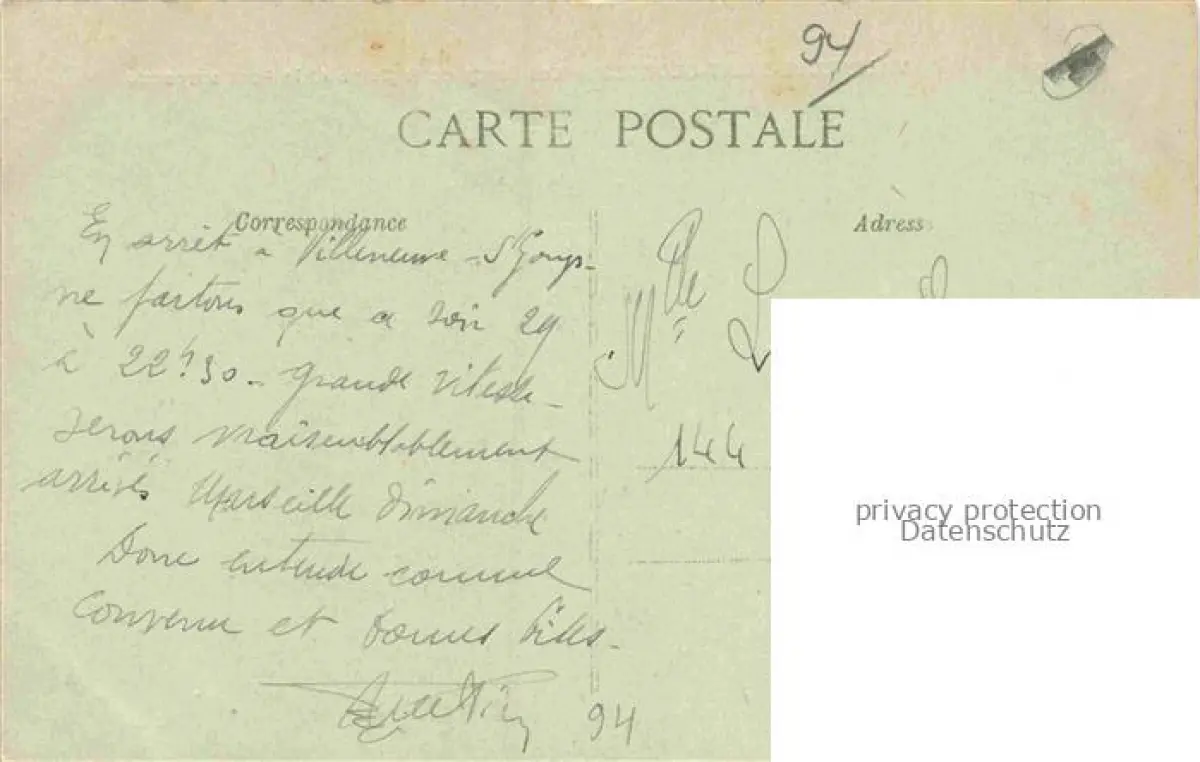 94
CARTE POSTALE
Correspondance
Adress
En arrêt a Villeneuve - St
ne partons que ce soir 29
à 22h30 - grande vitesse -
serons vraisemblablement
arrivés Marseille Dimanche
Donc entendu comme
convenu et Bonnes Bises -
94
Mlle L
144
privacy protection
Datenschutz